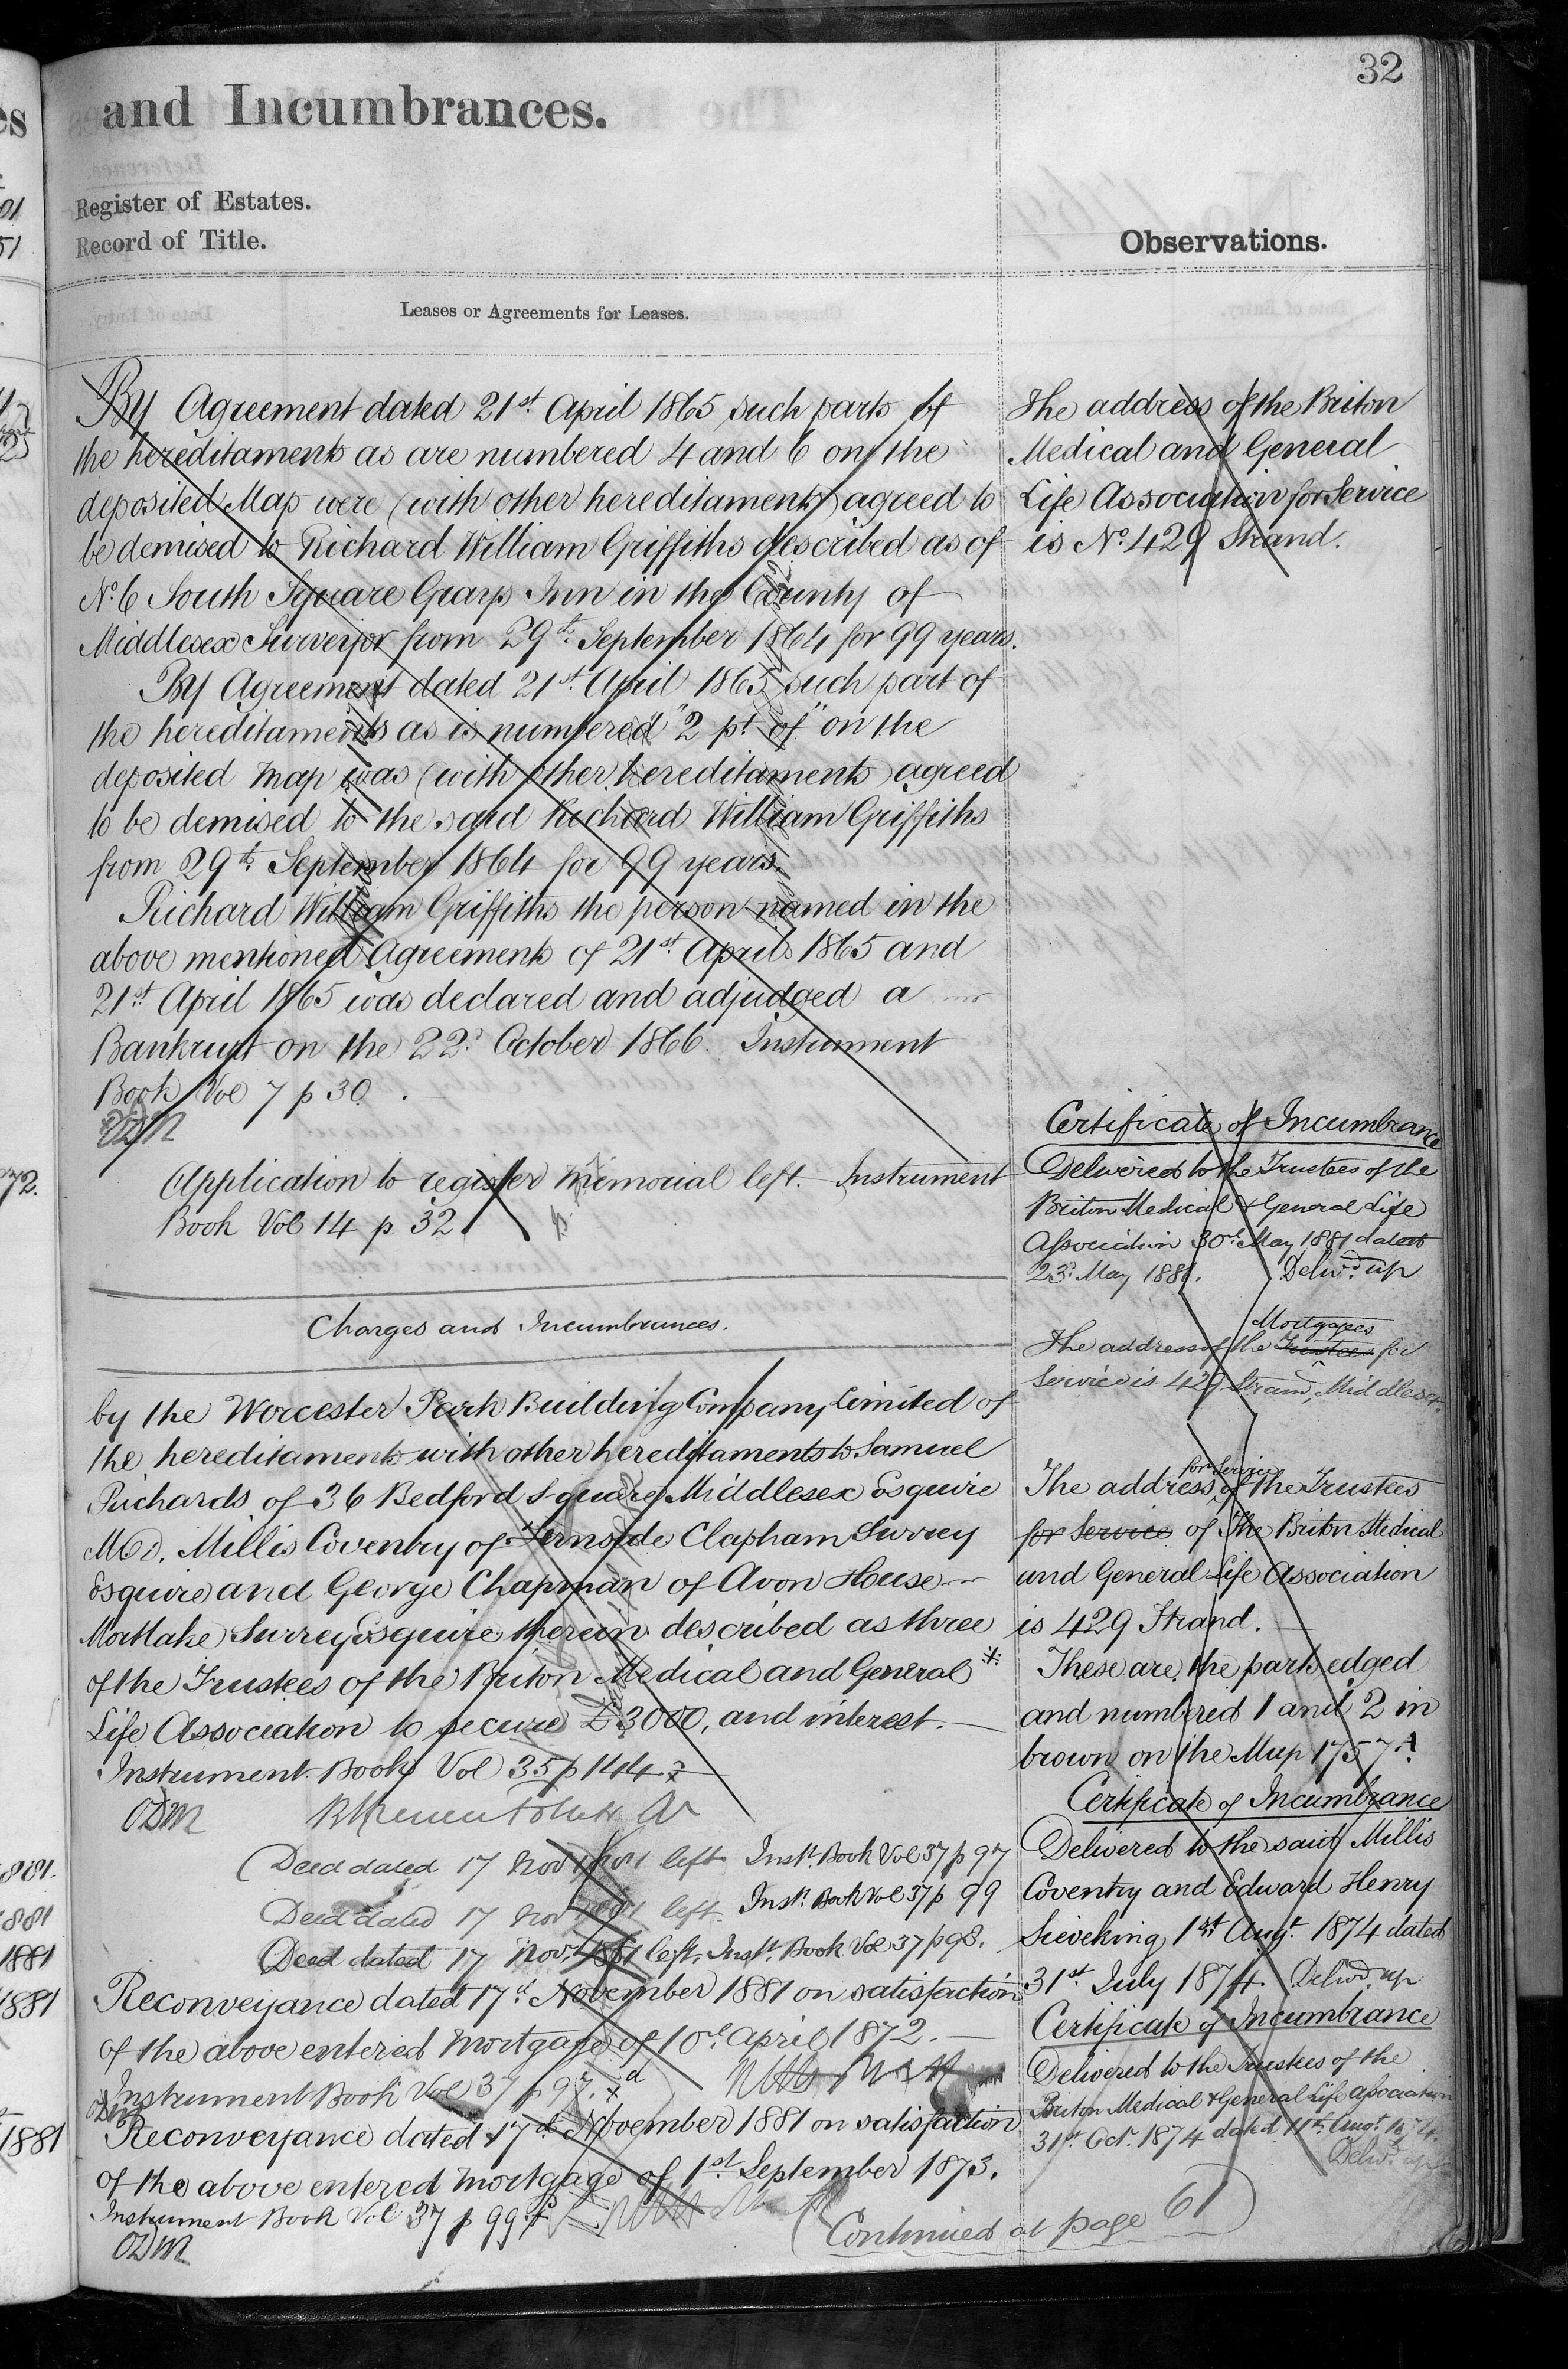 32
and Incumbrances.
Register of Estates.
Record of Title.
Observations.
Leases or Agreements for Leases.
By Agreement dated 21st April 1865 such parts of
the hereditaments as are numbered 4 and 6 on the
deposited Map were (with other hereditaments) agreed to
be demised to Richard William Griffiths described as of
No. 6 South Square Grays Inn in the County of
Middlesex Surveyor from 29th September 1864 for 99 years.
By Agreement dated 21st April 1865 such part of
the hereditaments as is numbered "2 pt. of" on the
deposited map was (with other hereditaments) agreed
to be demised to the said Richard William Griffiths
from 29th September 1864 for 99 years.
Richard William Griffiths the person named in the
above mentioned Agreements of 21st April 1865 and
21st April 1865 was declared and adjudged a
Bankrupt on the 22d October 1866. Instrument
Book Vol 7 p 30.
ODM
Application to register memorial left. Instrument
Book Vol 14 p 32
Charges and Incumbrances.
by the Worcester Park Building Company Limited of
the hereditaments with other hereditaments to Samuel
Richards of 36 Bedford Square Middlesex Esquire
M.D. Millis Coventry of Fernside Clapham Surrey
Esquire and George Chapman of Avon House
Mortlake Surrey Esquire therein described as three
of the Trustees of the Briton Medical and General
Life Association to secure £3000, and interest.
Instrument Book Vol 35 p 144
ODM
Deed dated 17 Nov 1881 left Inst. Book Vol 37 p 97
Deed dated 17 Nov 1881 left. Inst. Book Vol 37 p 99
Deed dated 17 Novr 1881 left. Inst. Book Vol 37 p 98.
Reconveyance dated 17th November 1881 on satisfaction
of the above entered Mortgage of 10th April 1872.
Instrument Book Vol 37 p 97.
ODM
Reconveyance dated 17th November 1881 on satisfaction
of the above entered mortgage of 1st September 1873.
Instrument Book Vol 37 p 99
ODM
(Continued at page 61)
The address of the Briton
Medical and General
Life Association for Service
is No. 429 Strand.
Certificate of Incumbrance
Delivered to the Trustees of the
Briton Medical & General Life
Association 30th May 1881 dated
23d May 1881. Delivd. up
Mortgagees
The address of the Trustees for
Service is 429 Strand, Middlesex.
for Service
The address of the Trustees
for Service of the Briton Medical
and General Life Association
is 429 Strand.
These are the parts edged
and numbered 1 and 2 in
brown on the Map 1757A.
Certificate of Incumbrance
Delivered to the said Millis
Coventry and Edward Henry
Sieveking 1st Augt. 1874 dated
31st July 1874. Delivd. up
Certificate of Incumbrance
Delivered to the Trustees of the
Briton Medical & General Life Association
31st Oct. 1874 dated 11th Augt. 1874.
Delivd. up
72.
1881.
1881
1881
1881
1881